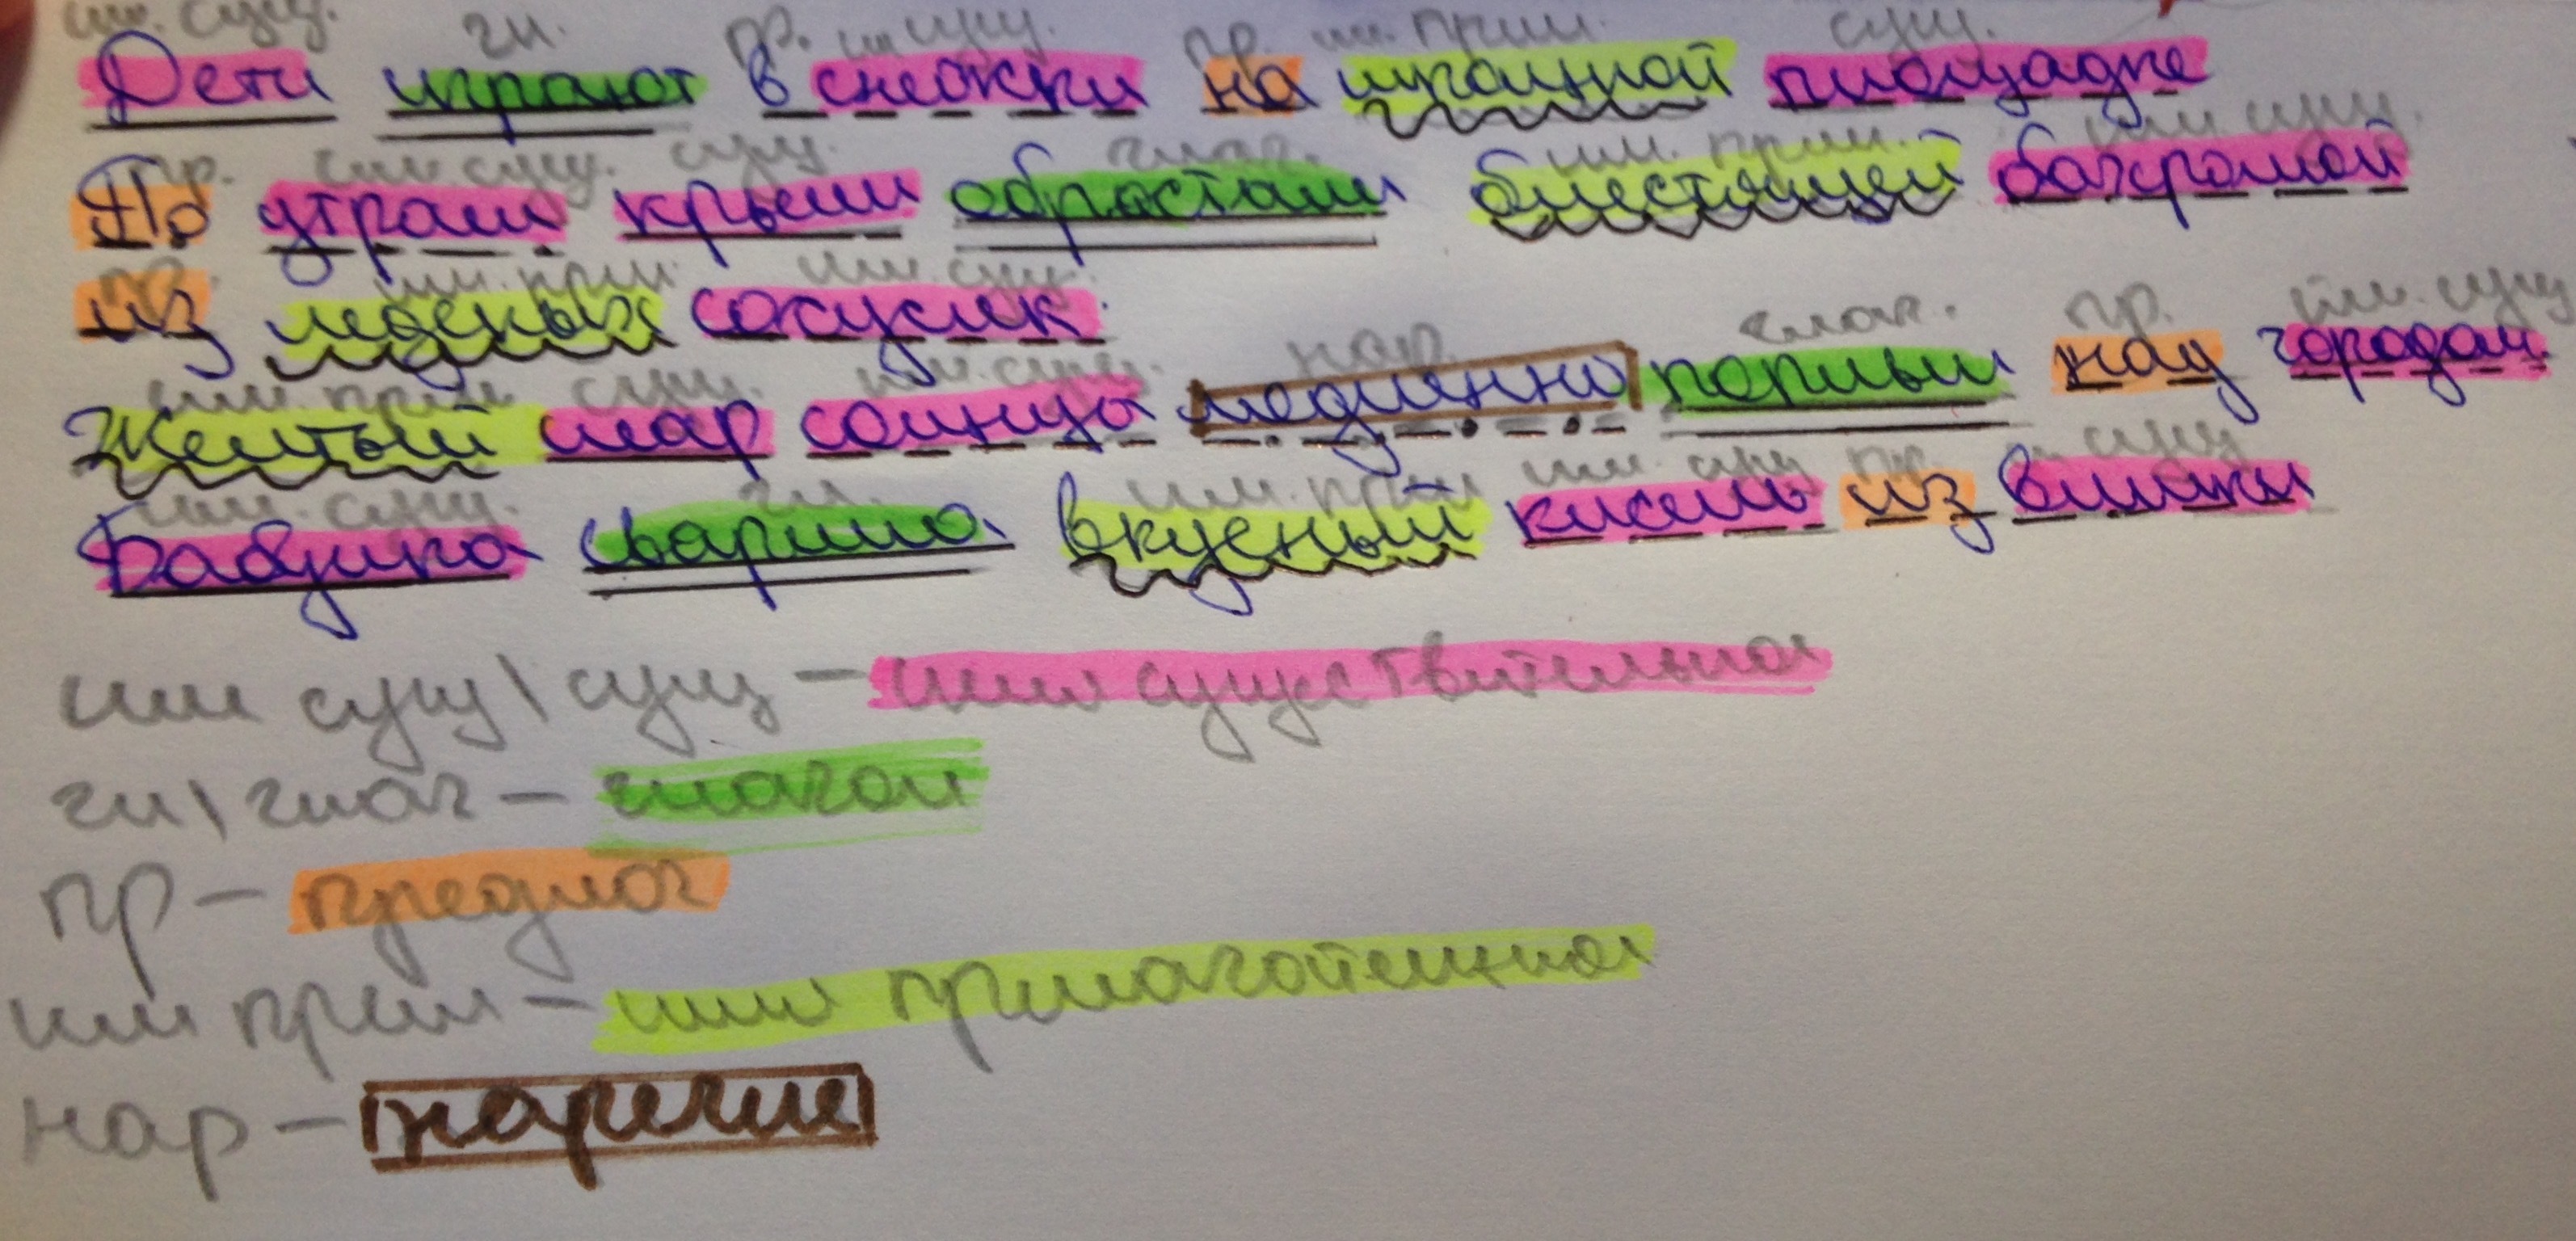 им. сущ. гл. пр. им сущ. пр. им. прил. сущ.
Дети играют в снежки на площадке
пр. им сущ. сущ. глаг. им. прил. им сущ.
По утрам крыши обрастали блестящей бахромой
пр. им. прил. им. сущ.
из ледяных сосулек.
нар. глаг. пр. им. сущ
им. прил сущ. им. сущ.
Желтый шар солнца медленно поплыл над городом.
им. сущ. гл. им. прил им. сущ пр. сущ
Бабушка сварила вкусный кисель из вишни
им сущ\сущ — имя существительное
гл\глаг — глагол
пр — предлог
им прил — имя
нар — наречие